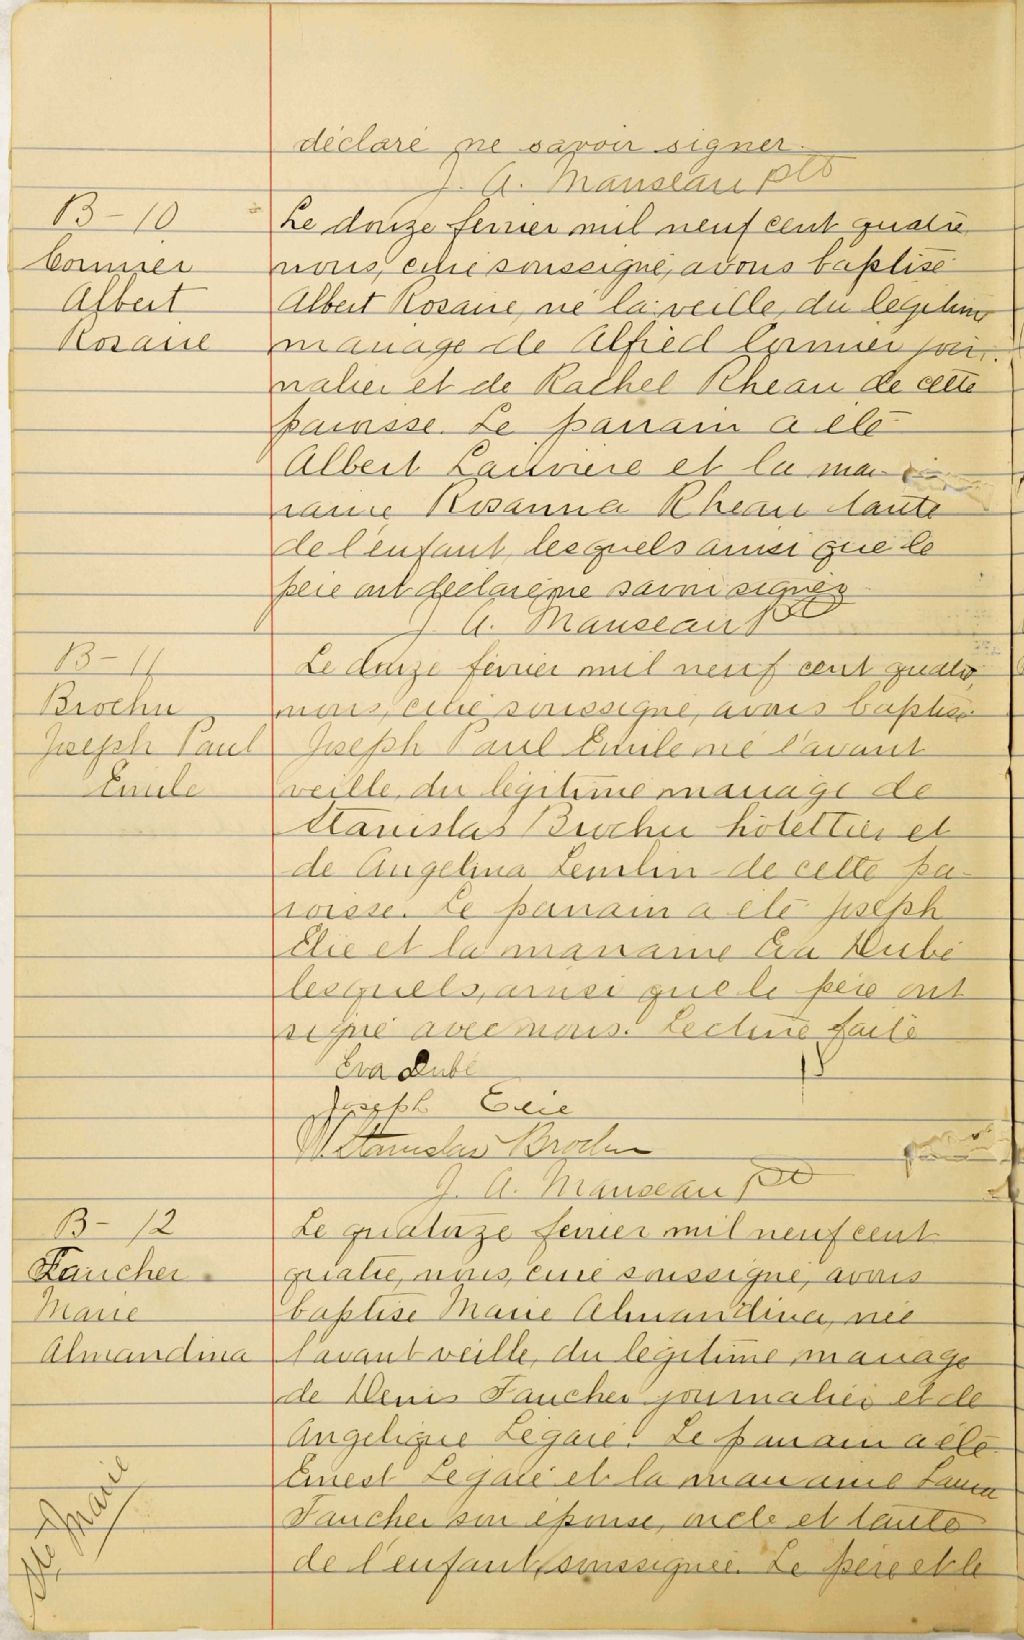 déclaré ne savoir signer.
J. A. Manseau ptr
B-10
Cormier
Albert
Rosaire
Le douze fevrier mil neuf cent quatre
nous, curé soussigné, avons baptisé
Albert Rosaire, né la veille, du légitime
mariage de Alfred Cormier jour-
nalier et de Rachel Rheau de cette
paroisse. Le parrain a été
Albert Lariviere et la mar-
raine Rosanna Rheau tante
de l'enfant, lesquels ainsi que le
père ont déclaré ne savoir signer
J. A. Manseau ptr
B-11
Brochu
Joseph Paul
Emile
Le douze février mil neuf cent quatre,
nous, curé soussigné, avons baptisé
Joseph Paul Emile né l'avant
veille, du légitime mariage de
Stanislas Brochu hôtellier et
de Angelina Lemlin de cette pa-
roisse. Le parrain a été Joseph
Elie et la marraine Eva Dubé
lesquels, ainsi que le père ont
signé avec nous. Lecture faite
Eva Dubé
Joseph Elie
Stanislas Brochu
J. A. Manseau ptr
B-12
Faucher
Marie
Almandina
Ste Marie
Le quatorze fevrier mil neuf cent
quatre, nous, curé soussigné, avons
baptisé Marie Almandina, née
l'avant veille, du légitime mariage
de Denis Faucher journalier et de
Angelique Légaré. Le parrain a été
Ernest Légaré et la marraine Laura
Faucher son épouse, oncle et tante
de l'enfant, soussignée. Le père et le